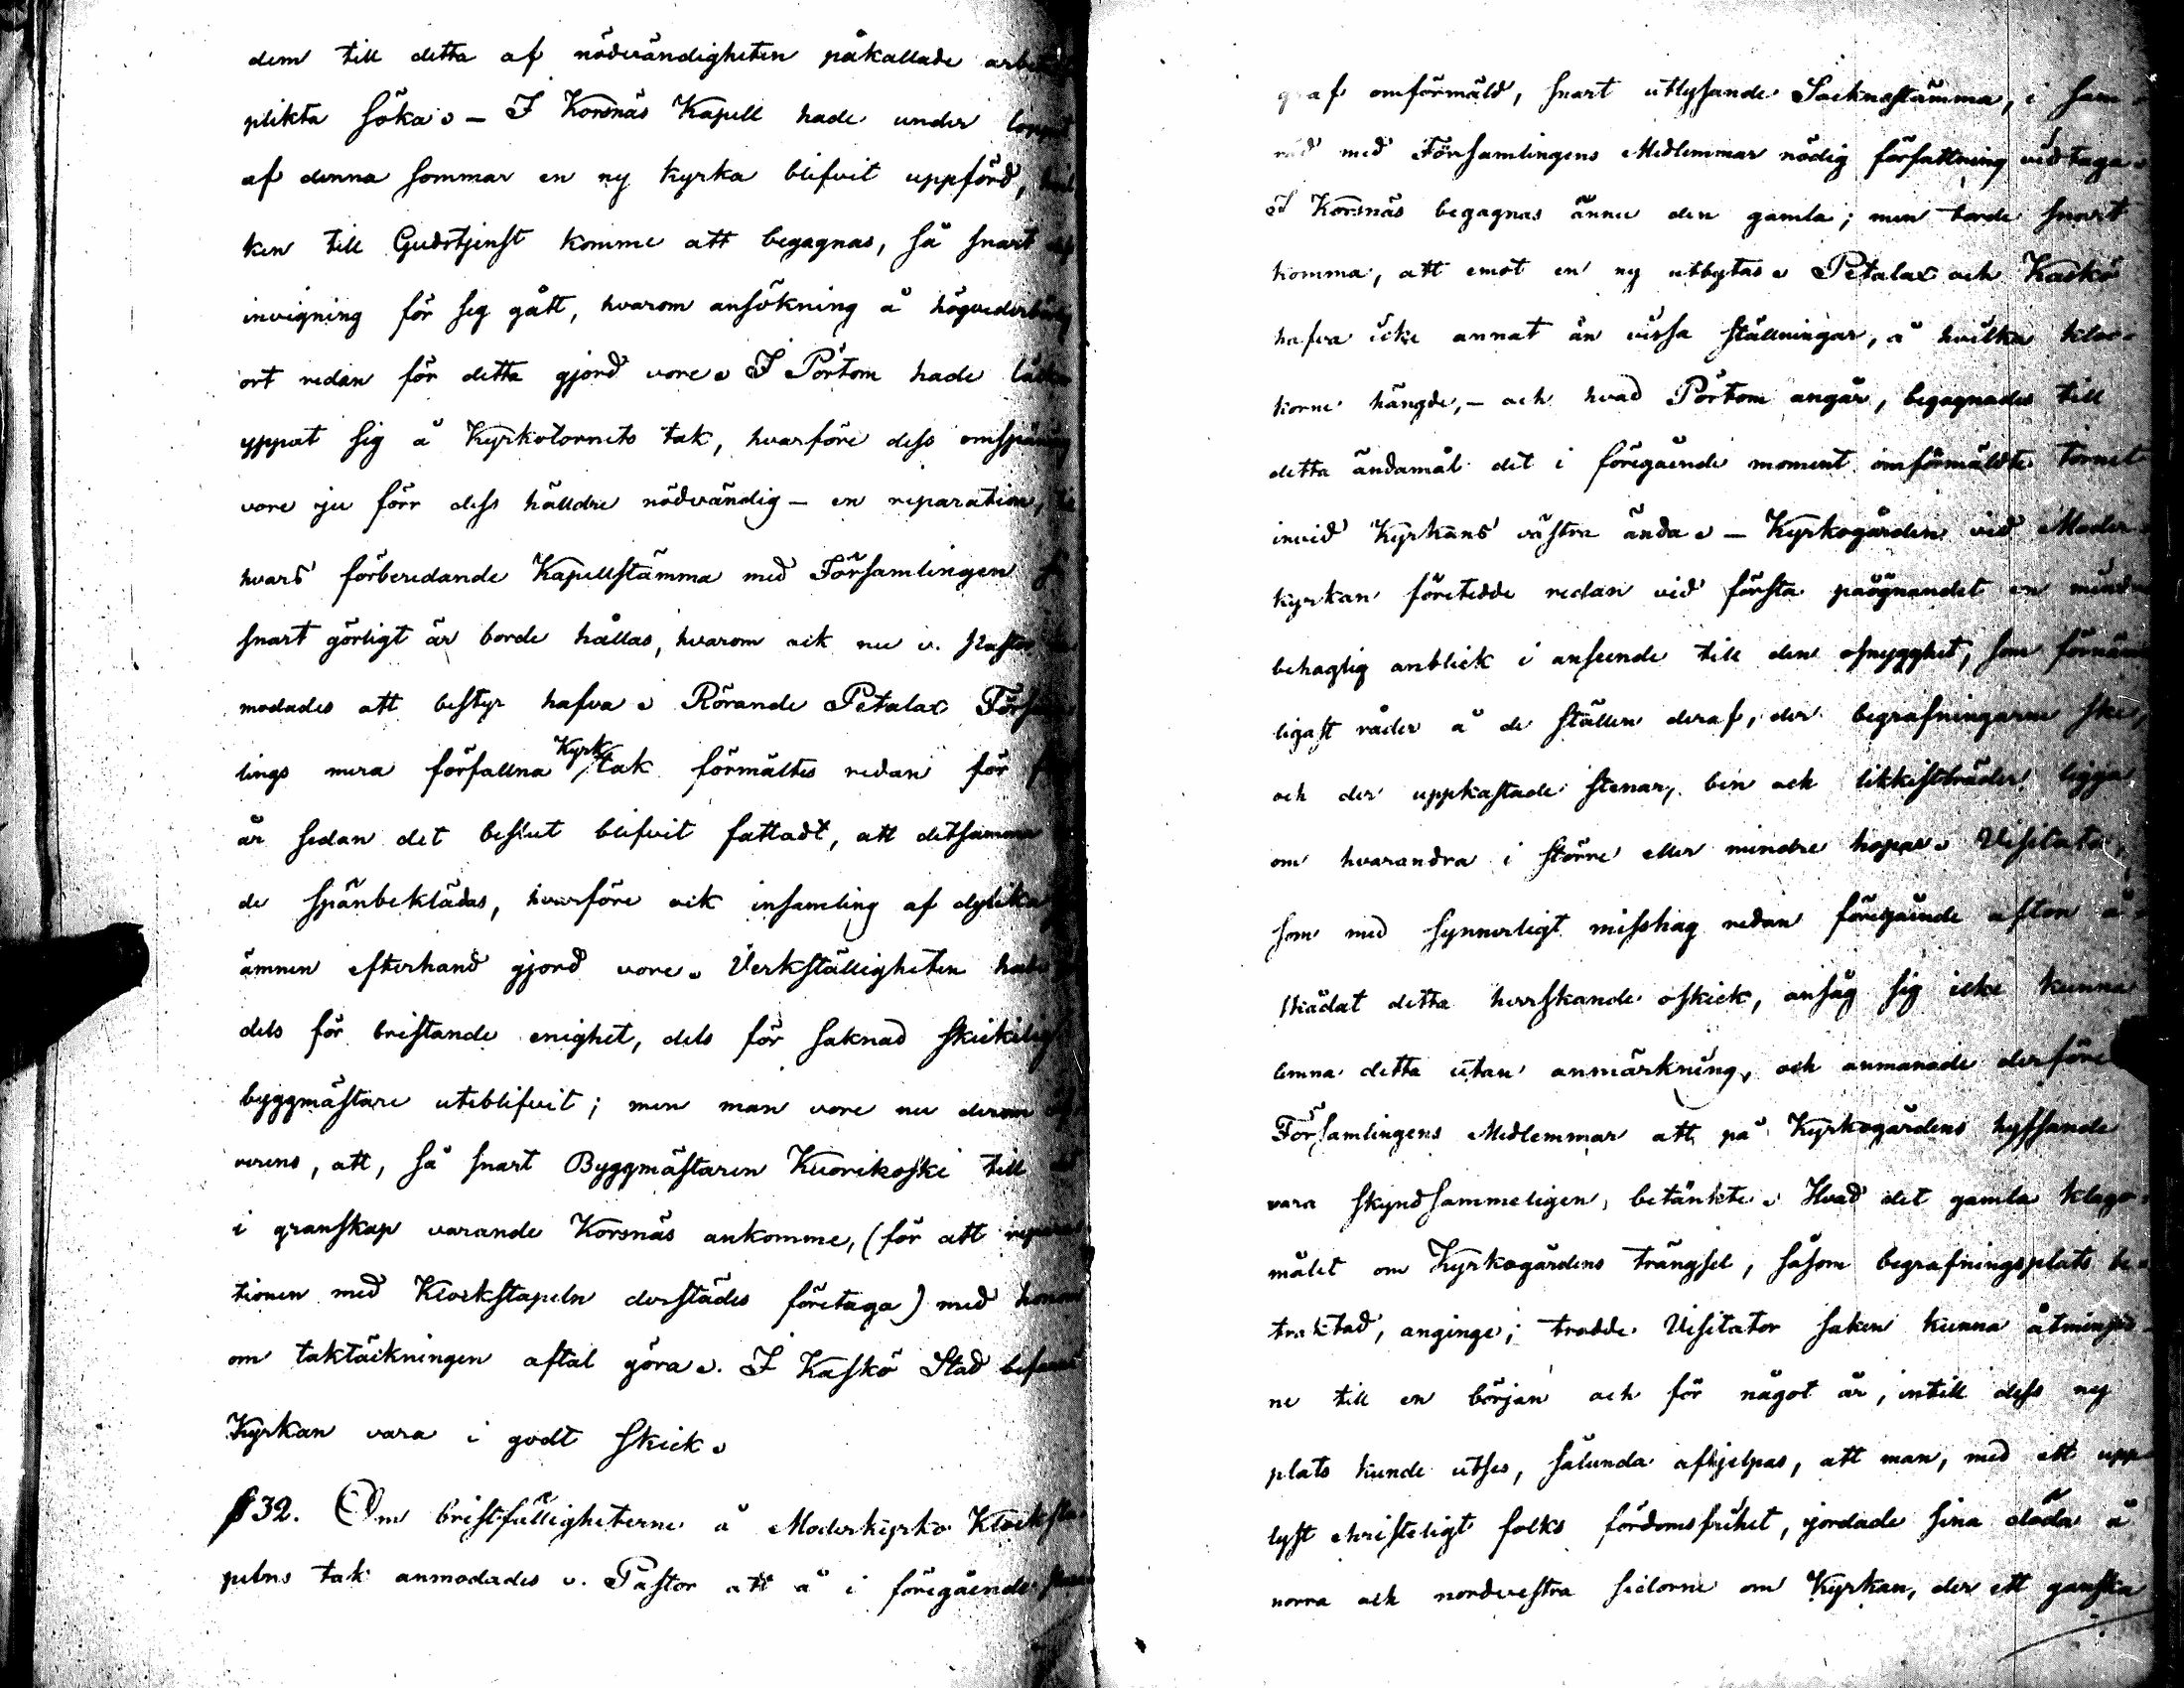 dem till detta af nödvändigheten påkallade
plikta söka. – I Korsnäs Kapell hade under loppet
af denna sommar en ny kyrka blifvit uppförd,
ken till Gudstjenst komme att begagnas, så snart
invigning för sig gått, hvarom ansökning å
ort redan för detta gjord vore. I Pörtom hade
yppat sig å Kyrkotornets tak, hvarföre dess
vore ju förr dess hälldre nödvändig – en reparation,
hvars förberedande Kapellstämma med Församlingen så
snart görligt är borde hållas, hvarom ock nu v. Pastor
modades att bestyr hafva. Rörande Petalax
lings mera förfallna Kyrktak förmältes redan för
år sedan det beslut blifvit fattadt, att detsamma
de spånbeklädas, hvarföre ock insamling af dylika
ämnen efterhand gjord vore. Verkställigheten
dels för bristande enighet, dels för saknad skicklig
byggmästare uteblifvit; men man vore nu derom
verens, att, så snart Byggmästaren Kuorikoski till
i granskap varande Korsnäs ankomme, (för att repara
tionen med Klockstapeln derstädes företaga) med honom
om taktäckningen aftal göra. I Kaskö Stad befanns
Kyrkan vara i godt skick.
§ 32. Om bristfälligheterne å Moderkyrko Klocksta
pelns tak anmodades v. Pastor att å i föregående
graf omförmäld, snart utlysande Socknestämma, i sam
råd med Församlingens Medlemmar nödig författning vidtaga.
I Korsnäs begagnas ännu den gamla; men torde snart
komma, att emot en ny utbytas. Petalax och Kaskö
hafva icke annat än vissa ställningar, å hvilka kloc-
korne hängde, – och hvad Pörtom angår, begagnades till
detta ändamål det i föregående moment omförmäldte tornet
invid Kyrkans västra ända. – Kyrkogården vid Moder
kyrkan företedde redan vid första påögnandet en mindre
behaglig anblick i anseende till den osnygghet, som förnäm
ligast råder å de ställen deraf, der begrafningarne ske,
och der uppkastade stenar, ben och likkistbräder ligga
om hvarandra i större eller mindre hopar. Visitator,
som med synnerligt misshag redan föregående afton å
skådat detta herrskande oskick, ansåg sig icke kunna
lemna detta utan anmärkning, och anmanade derföre
Församlingens Medlemmar att på Kyrkogårdens hyfsande
vara skyndsammeligen betänkte. Hvad det gamla klago
målet om Kyrkogårdens trångsel, såsom begrafningsplats be
traktad, anginge; trodde Visitator saken kunna åtminsto
ne till en början och för något år, intill dess ny
plats kunde utses, sålunda afhjelpas, att man, med ett upp
lyst christeligt folks fördomsfrihet, jordade sina döda å
norra och nordvestra sidorne om Kyrkan, der ett ganska